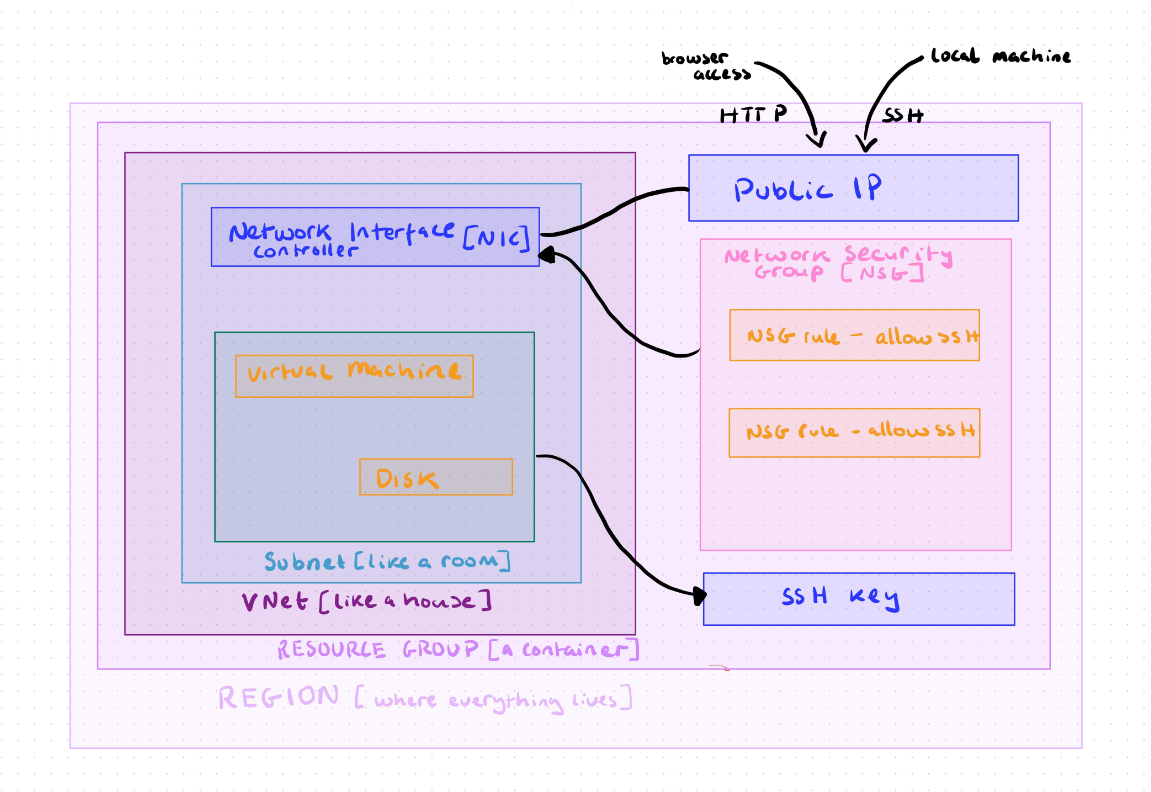 browser
access
local machine
HTTP
SSH
Public IP
Network Interface [NIC]
controller
Network Security
Group [NSG]
NSG rule - allow SSH
Virtual Machine
NSG rule - allow SSH
Disk
Subnet [like a room]
VNet [like a house]
SSH key
RESOURCE GROUP [a container]
REGION [where everything lives]